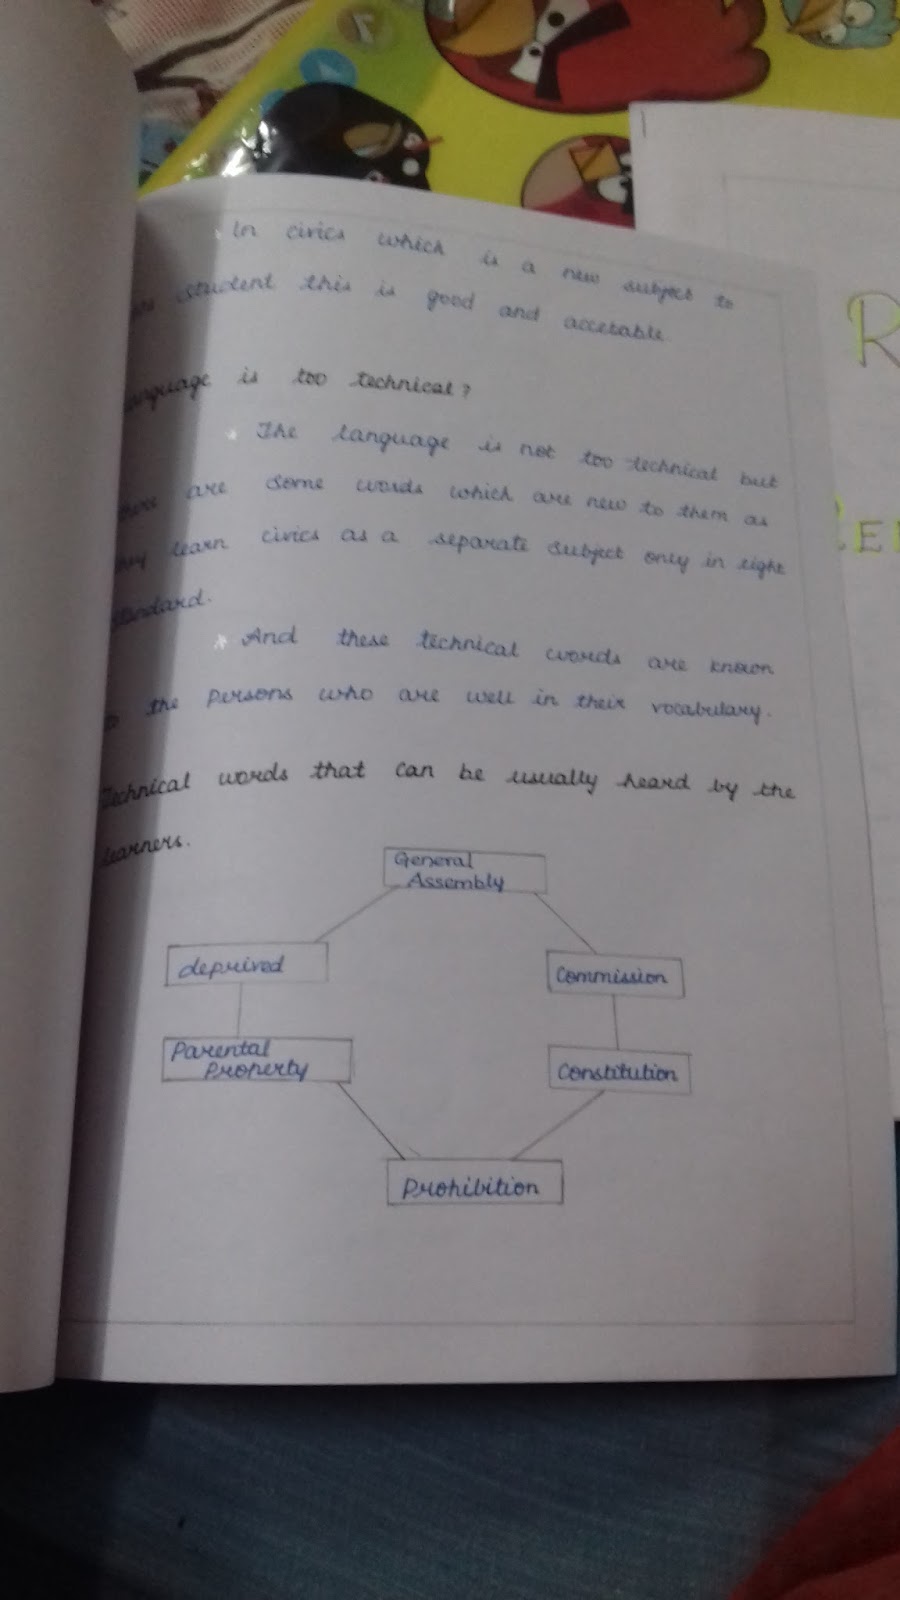 In civics which is a new subject to
student this is good and accetable
language is too technical?
* The language is not too technical but
there are some words which are new to them as
they learn civics as a separate subject only in eight
standard.
* And these technical words are known
to the persons who are well in their vocabulary.
Technical words that can be usually heard by the
learners.
General
Assembly
deprived
Commission
Parental
Property
Constitution
Prohibition
R